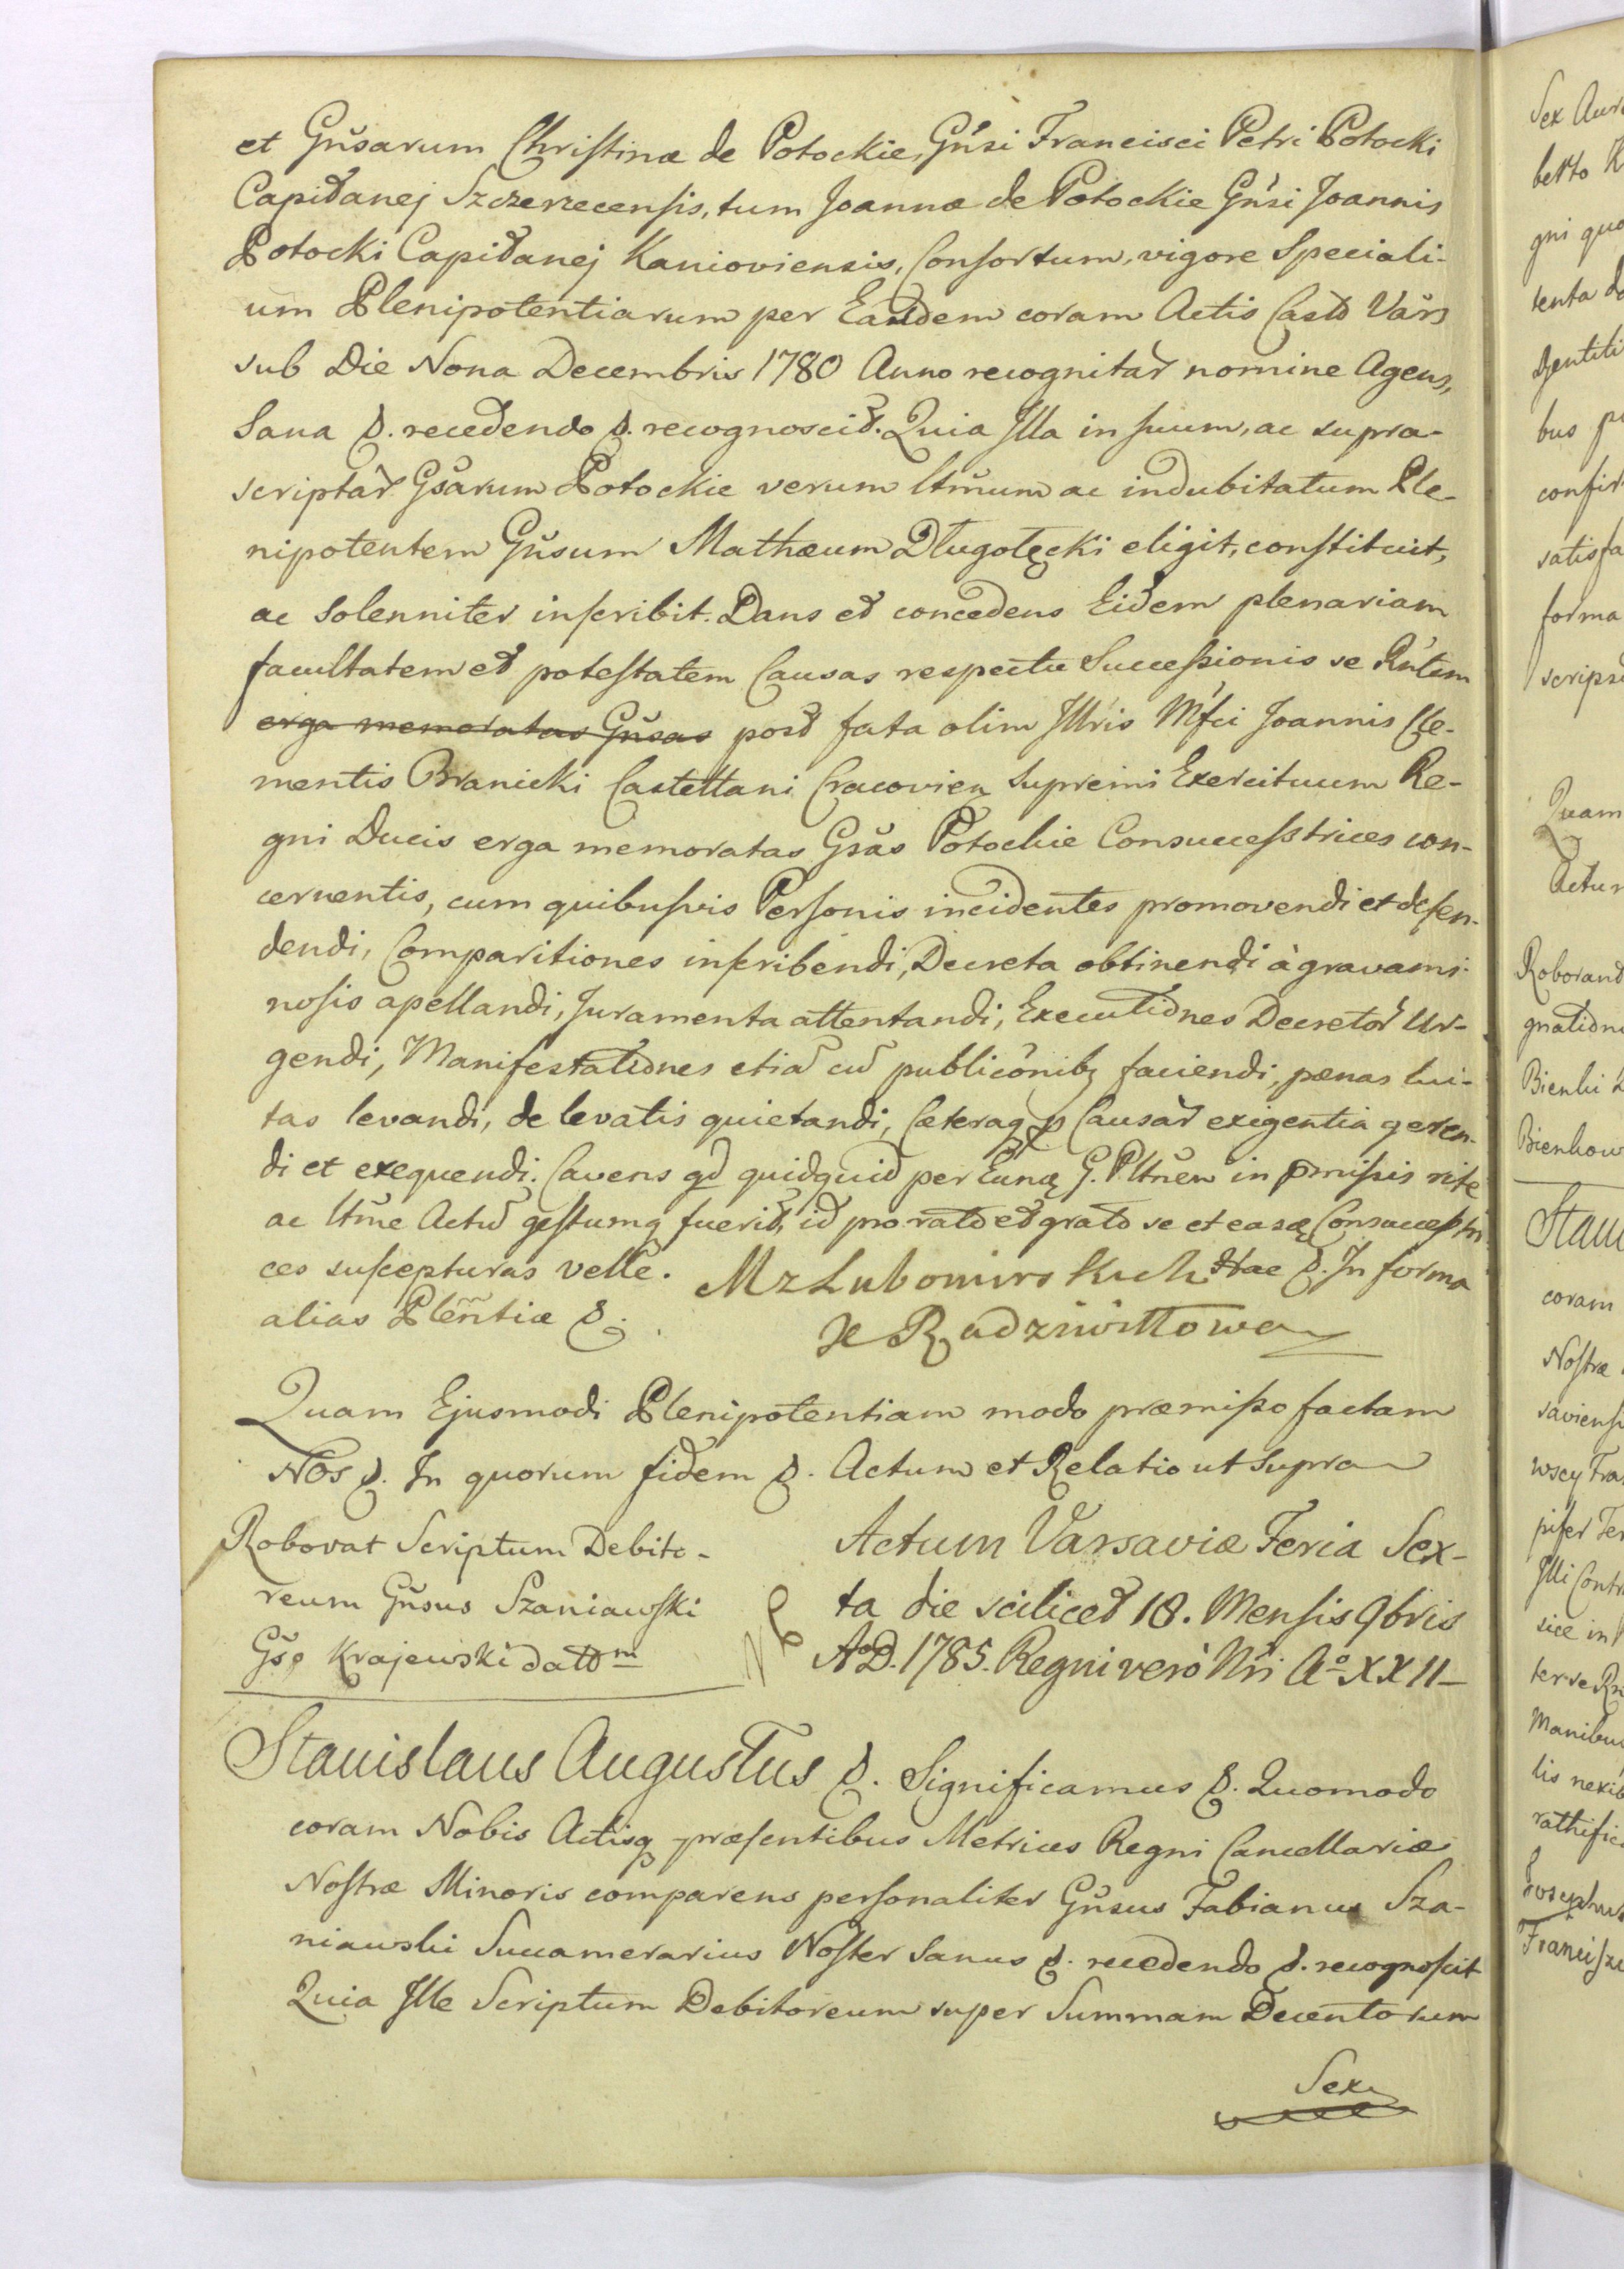 et Gn̆sarum Christinæ de Potockie, Gn̆si Francisci Petri Potocki
Capitanej Szczerzecensis, tum Joannæ de Potockie Gn̆si Joannis
Potocki Capitanej Kanioviensis, Consortum, vigore Speciali-
um Plenipotentiarum per Easdem coram Actis Castr Vars
sub Die Nona Decembris 1780 Anno recognitar nomine Agens,
Sana &. recedendo &. recognoscit. Quia Illa in suum, ac supra-
scriptar Gsarum Potockie verum ltmum ac indubitatum Ple-
nipotentem Gn̆sum Mathæum Długołęcki eligit, constituit,
ac Solenniter inscribit. Dans et concedens Eidem plenariam
facultatem et potestatem Causas respectu Successionis se
erga memoratas Gn̆sas post fata olim Illris Mfci Joannis Cle-
mentis Branicki Castellani Cracovien Supremi Exercituum Re-
gni Ducis erga memoratas Gsas Potockie Consuccesstrices con-
cernentis, cum quibusvis Personis incidentes promovendi et defen-
dendi, Comparitiones inscribendi, Decreta obtinendi à gravami-
nosis apellandi, Juramenta attentandi, Executiones Decretor Ur-
gendi, Manifestationes etia cu publiconibq faciendi, pænas lui-
tas levandi, de levatis quietandi, Cæteraq p Causar exigentia geren-
di et exequendi. Cavens qd quidquid per Eunq G. Pltnen in præmissis rite
ac ltme Actu gestumq fuerit, id pro rato et grato se et easq Consuccesstri
ces suscepturas velle. MzLubomirskich Hac &. In forma
alias Plenntiæ &. K Radziwiłłowa
Quam Ejusmodi Plenipotentiam modo præmisso factam
Nos &. In quorum fidem &. Actum et Relatio ut Supra
Roborat Scriptum Debito-
reum Gn̆sus Szaniawski
Gso Krajewski datm
Actum Varsaviæ Feria Sex-
ta die scilicet 18. Mensis 9bris
AoD. 1785. Regni verò Nri Ao XXII
Stanislaus Augustus &. Significamus &. Quomodo
coram Nobis Actisq præsentibus Metrices Regni Cancellariæ
Nostræ Minoris comparens personaliter Gn̆sus Fabianus Sza-
niawski Succamerarius Noster Sanus &. recedendo &. recognoscit
Quia Ille Scriptum Debitoreum super Summam Ducentorum
Sex